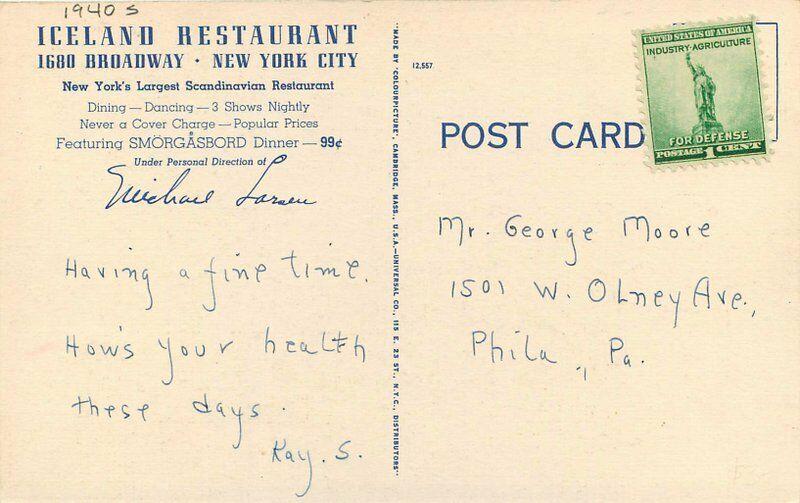 1940s
ICELAND RESTAURANT
1680 BROADWAY · NEW YORK CITY
New York's Largest Scandinavian Restaurant
Dining — Dancing — 3 Shows Nightly
Never a Cover Charge — Popular Prices
Featuring SMÖRGÅSBORD Dinner — 99¢
Under Personal Direction of
Michael Larsen
Having a fine time.
How's your health
these days.
Kay. S.
"MADE BY 'COLOURPICTURE', CAMBRIDGE, MASS., U.S.A.—UNIVERSAL CO., 115 E. 23 ST., N.Y.C., DISTRIBUTORS"
12,557
POST CARD
UNITED STATES OF AMERICA
INDUSTRY-AGRICULTURE
FOR DEFENSE
POSTAGE 1 CENT
Mr. George Moore
1501 W. Olney Ave.,
Phila., Pa.